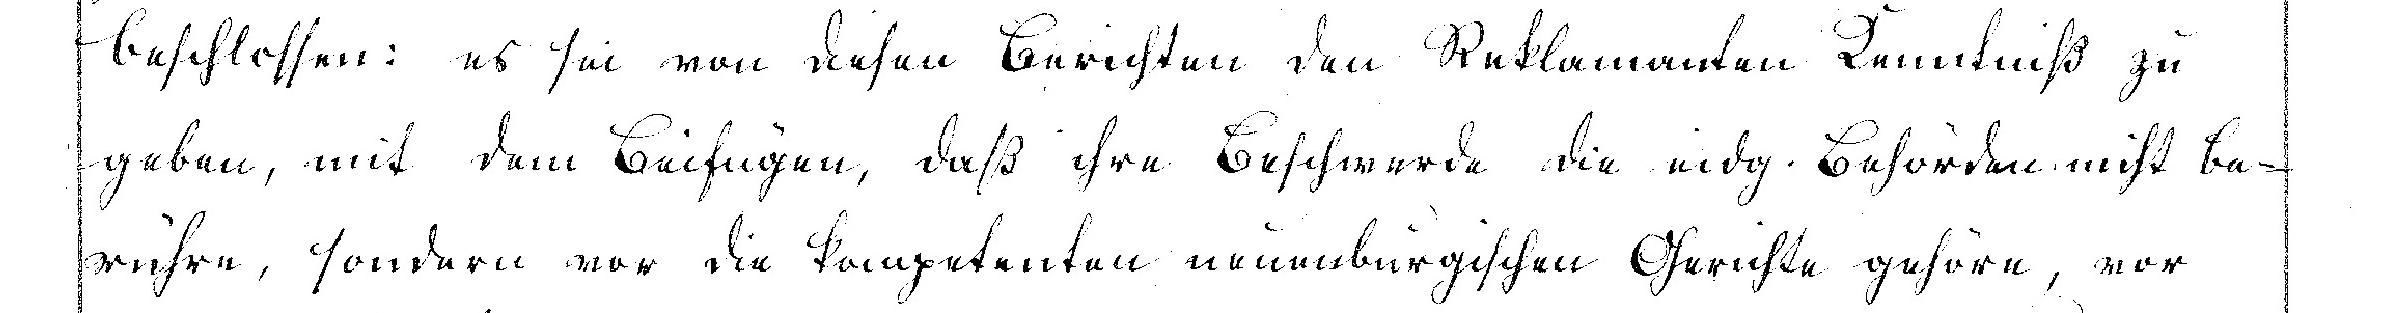 beschlossen: es sei von diesen Berichten den Reklamanten Kenntniß zu
geben, mit dem Beifügen, daß ihre Beschwerde die eidg. Behörden nicht be-
rühre, sondern vor die kompetenten neuenburgischen Gerichte gehöre, vor